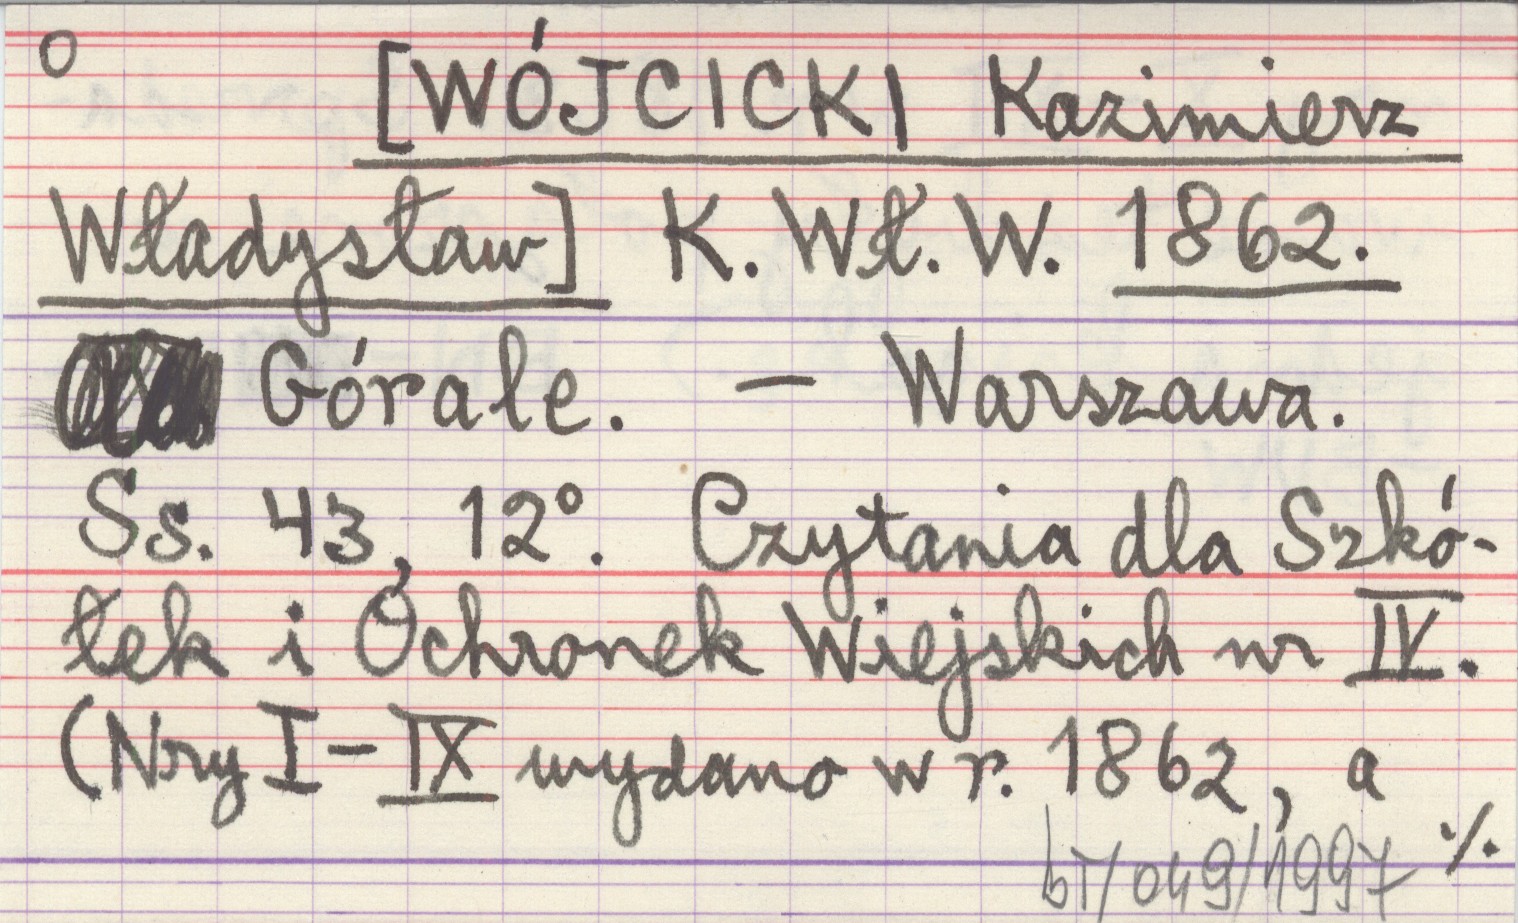 O
[WÓJCICKI Kazimierz
Władysław] K. Wł. W. 1862.
Górale. — Warszawa.
Ss. 43, 12°. Czytania dla Szkó-
łek i Ochronek Wiejskich nr IV.
(Nry I – IX wydano w r. 1862, a
bT/049/1997 ./.